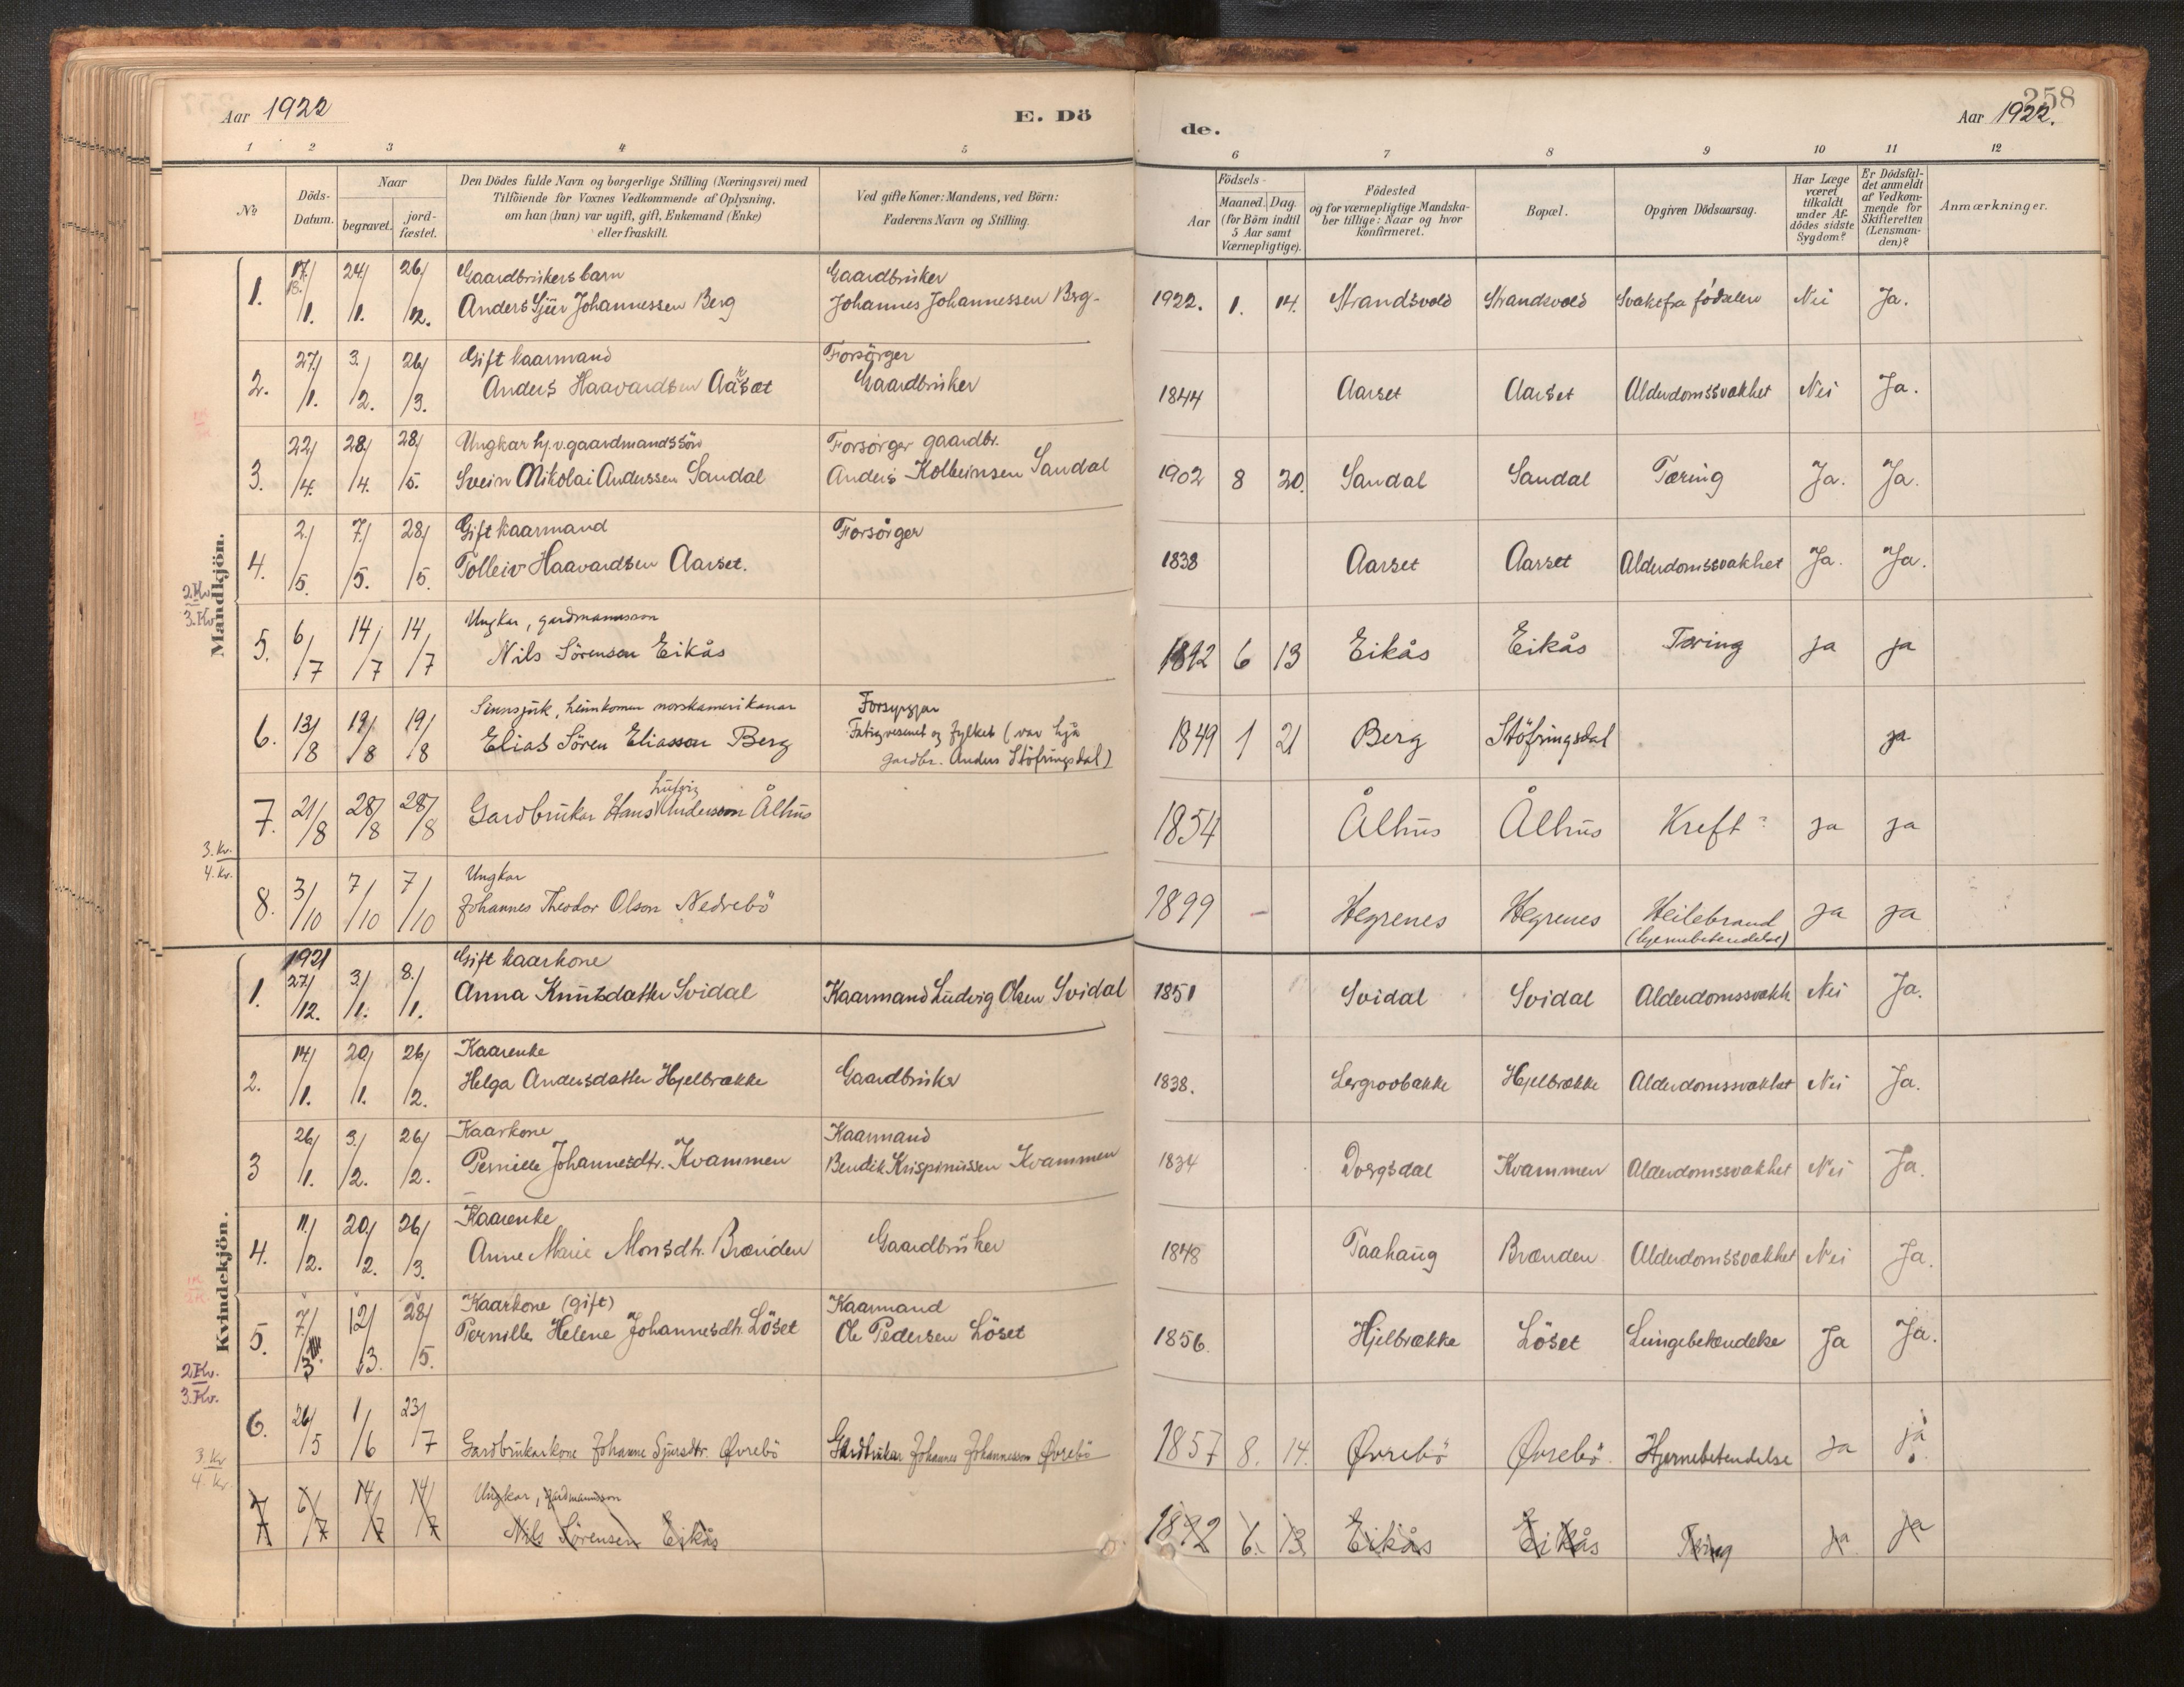 Aar 1922
E. Dö
de.
258
Aar 1922.
1 2 3 4 5 6 7 8 9 10 11 12
No
Döds-
Datum.
Naar
begravet.
jord-
fæstet.
Den Dödes fulde Navn og borgerlige Stilling (Næringsvei) med
Tilföiende for Voxnes Vedkommende af Oplysning,
om han (hun) var ugift, gift, Enkemand (Enke)
eller fraskilt.
Ved gifte Koner: Mandens, ved Börn:
Faderens Navn og Stilling.
Födsels-
Aar
Maaned. Dag.
(for Börn indtil
5 Aar samt
Værnepligtige).
Födested
og for værnepligtige Mandska-
ber tillige: Naar og hvor
konfirmeret.
Bopæl.
Opgiven Dödsaarsag.
Har Læge
været
tilkaldt
under Af-
dödes sidste
Sygdom?
Er Dödsfal-
det anmeldt
af Vedkom-
mende for
Skifteretten
(Lensman-
den)?
Anmærkninger.
Mandkjön.
2.Kv.
3.Kv.
3. Kv.
4. Kv.
1. 17./1. 24/1. 26/12. Gaardbrukers barn Gaardbruker
Anders Sjur Johannessen Berg Johannes Johannessen Berg 1922. 1. 14. Strandsvold Strandsvold Svak fra fødselen Nei Ja.
2. 27./1. 3./2. 26/3. Gift kaarmand Forsörger
Anders Haavardsen Aarsæt Gaardbruker 1844 Aarset Aarset Alderdomssvakhet Nei Ja.
3. 22/4. 28/4. 28/5. Ungkar hj.v. gaardmandssön Forsörger gaardbr.
Svein Nikolai Anderssen Sandal Anders Kolbeinsen Sandal 1902 8 20. Sandal Sandal Tæring Ja. Ja.
4. 2./5. 7./5. 28/5. Gift kaarmand Forsörger
Tolleiv Haavardsen Aarset. 1838 Aarset Aarset Alderdomssvakhet Ja. Ja.
5. 6/7 14/7 14/7 Ungkar, gardmannsson
Nils Sörensen Eikås 1892 6 13 Eikås Eikås Tæring ja ja
6. 13/8 19/8 19/8 Sinnsjuk, heimkomen norskamerikanar Forsyrgjar
Elias Sören Eliasson Berg Fatigvesenet og fylket (var hjå
gardbr. Anders Stöfringsdal) 1849 1 21 Berg Stöfringsdal ja
7. 21/8 28/8 28/8 Gardbrukar Hans Ludvig Anderson Ålhus 1854 Ålhus Ålhus Kreft? ja ja
8. 3/10 7/10 7/10 Ungkar
Johannes Theodor Olson Nedrebö 1899 - Hegrenes Hegrenes Heilebrand ja ja
(hjernebetendelse)
Kvindekjön.
2.Kv.
3.Kv.
3. Kv
4. Kv.
1921
1. 27/12. 3/1. 8./1. Gift kaarkone
Anna Knutsdatter Svidal Kaarmand Ludvig Olsen Svidal 1851 Svidal Svidal Alderdomssvakh Nei Ja.
2. 14/1. 20/1. 26/2. Kaarenke
Helga Andersdatter Hjelbrække Gaardbruker 1838. Lergrovbakke Hjelbrække Alderdomssvakhet Nei Ja.
3 26/1. 3./2. 26/2. Kaarkone Kaarmand
Pernille Johannesdtr. Kvammen Bendik Krispinussen Kvammen 1834 Dvergsdal Kvammen Alderdomssvakhet Nei Ja.
4. 11./2. 20/2. 26/3. Kaarenke
Anne Marie Monsdtr. Brænden Gaardbruker 1848 Taahaug Brænden Alderdomssvakhet Nei Ja.
5. 7./3. 12/3. 28/5. Kaarkone (gift) Kaarmand
Pernille Helene Johannesdtr. Löset Ole Pedersen Löset 1856. Hjelbrække Löset Lungebetændelse Ja Ja.
6. 26/5 1/6 23/7 Gardbrukarkone Johanne Sjursdtr. Øvrebö Gardbrukar Johannes Johannesson Øvrebö 1857 8. 14. Øvrebö Øvrebö. Hjernebetendelse ja ja
7 6/7 14/7 14/7 Ungkar, gardmannsson
Nils Sörensen Eikås 1892 6. 13 Eikås Eikås Tæring ja ja